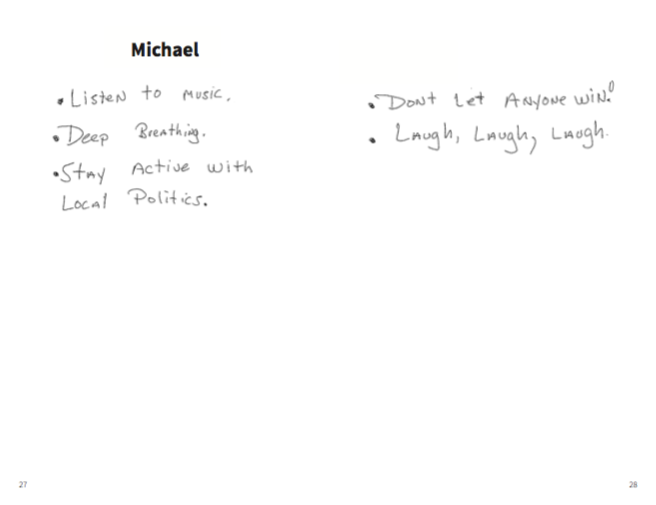 Michael
• Listen to music.
• Deep Breathing.
• Stay Active with
Local Politics.
• Dont Let Anyone win!
• Laugh, Laugh, Laugh.
27
28